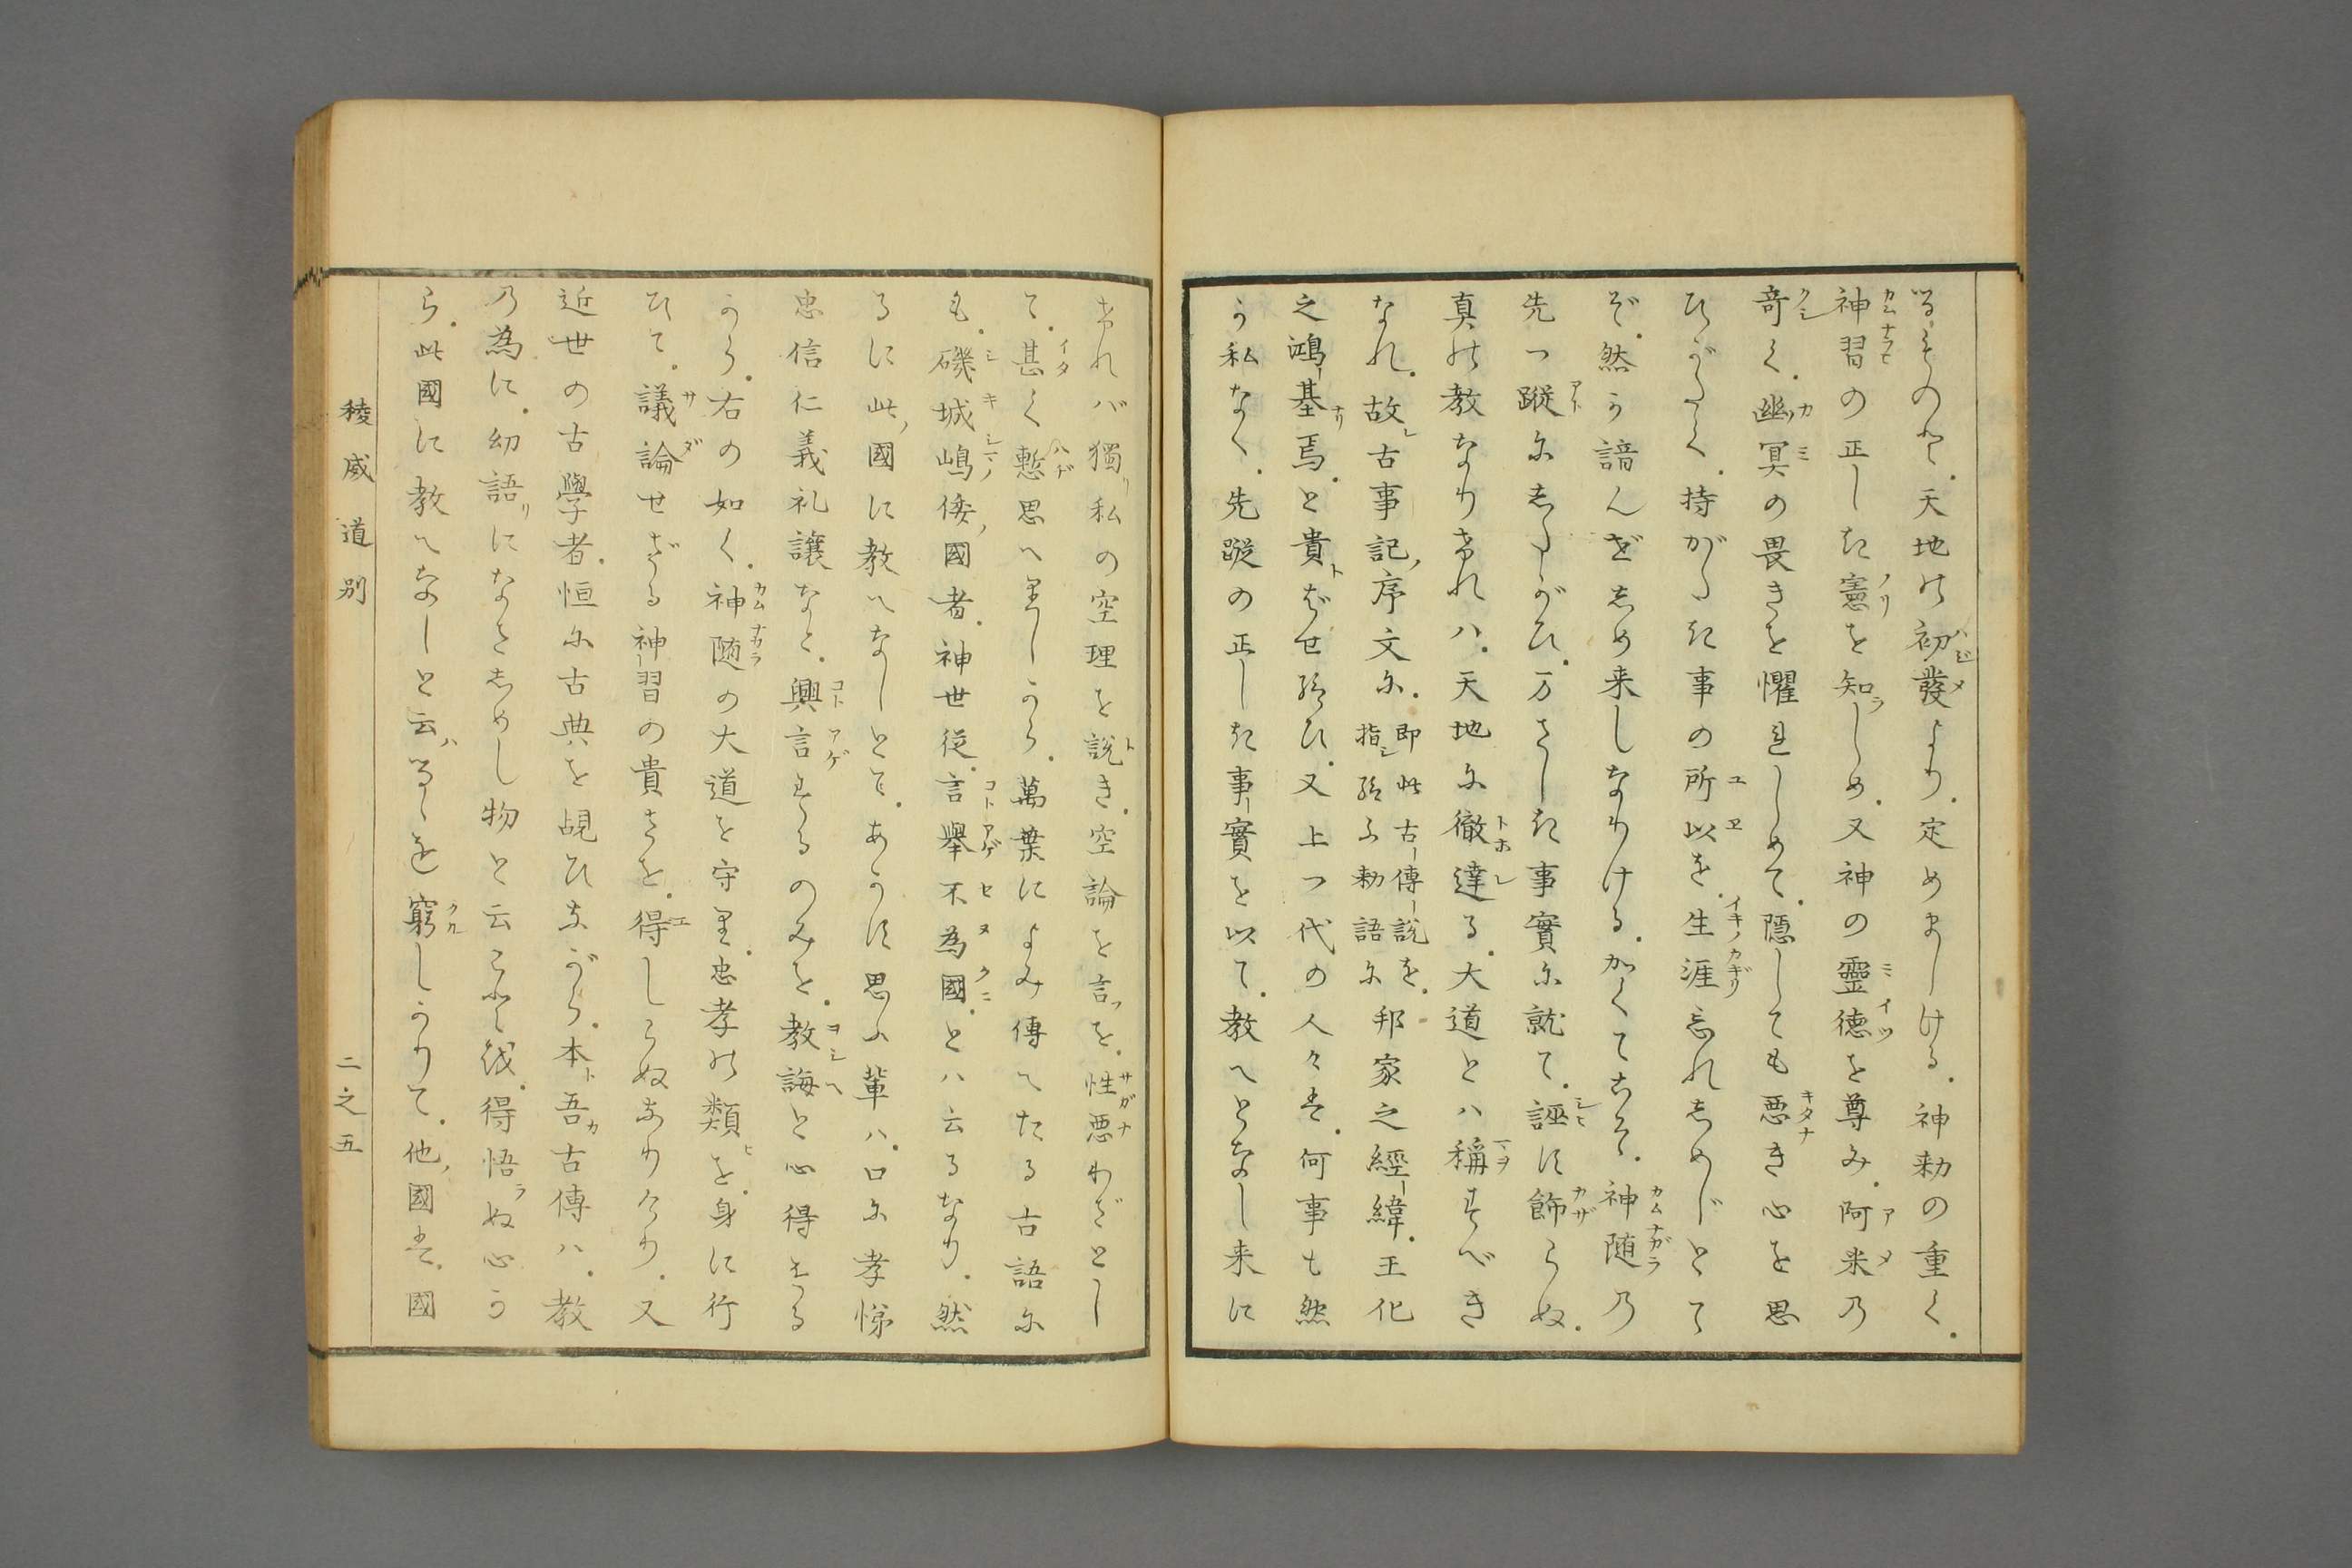 天地の初發より。定めましける。神勅の重く。
神習の正しき憲を知らしめ。又神の靈德を尊み。阿米乃
奇く。幽冥の畏きを懼れしめて。隱しても悪き心を思
ひがたく。持がたき事の所以を。生涯忘れしめじとて
ぞ。然か諳んぜしめ来しなりける。かくてこそ。神随乃
先つ蹤にしたがひ。万さしき事實に就て。誣ず飾らぬ。
真の教なりけれハ。天地に徹達る。大道とハ稱すべき
なれ。故古事記序文に。即此古傳説を。指給ふ勅語に邦家之經緯。王化
之鴻基焉。と貴ばせ給ひ。又上つ代の人々は。何事も然
か私なく。先蹤の正しき事實を以て。教へとなし来に
けれバ獨私の空理を説き。空論を言を。性悪わざとし
て。甚く慙思へりしから。萬葉によみ傳へたる古語に
も。磯城嶋倭國者。神世従。言擧不為國。とハ云るなり。然
るに此國に教へなしとて。あかに思ふ輩ハ。口に孝悌
忠信仁義礼讓など。興言するのみを。教誨と心得たる
から。右の如く。神随の大道を守り。忠孝の類を。身に行
ひて。議論せざる神習の貴さを。得しらぬなりけり。又
近世の古學者。恒に古典を覘ひながら。本吾古傳ハ。教
乃為に。幼語になさしめし物と云ことを。得悟らぬ心か
ら。此國に教へなしと云はるゝを窮しかりて。他國は。國
稜威道別
二之五